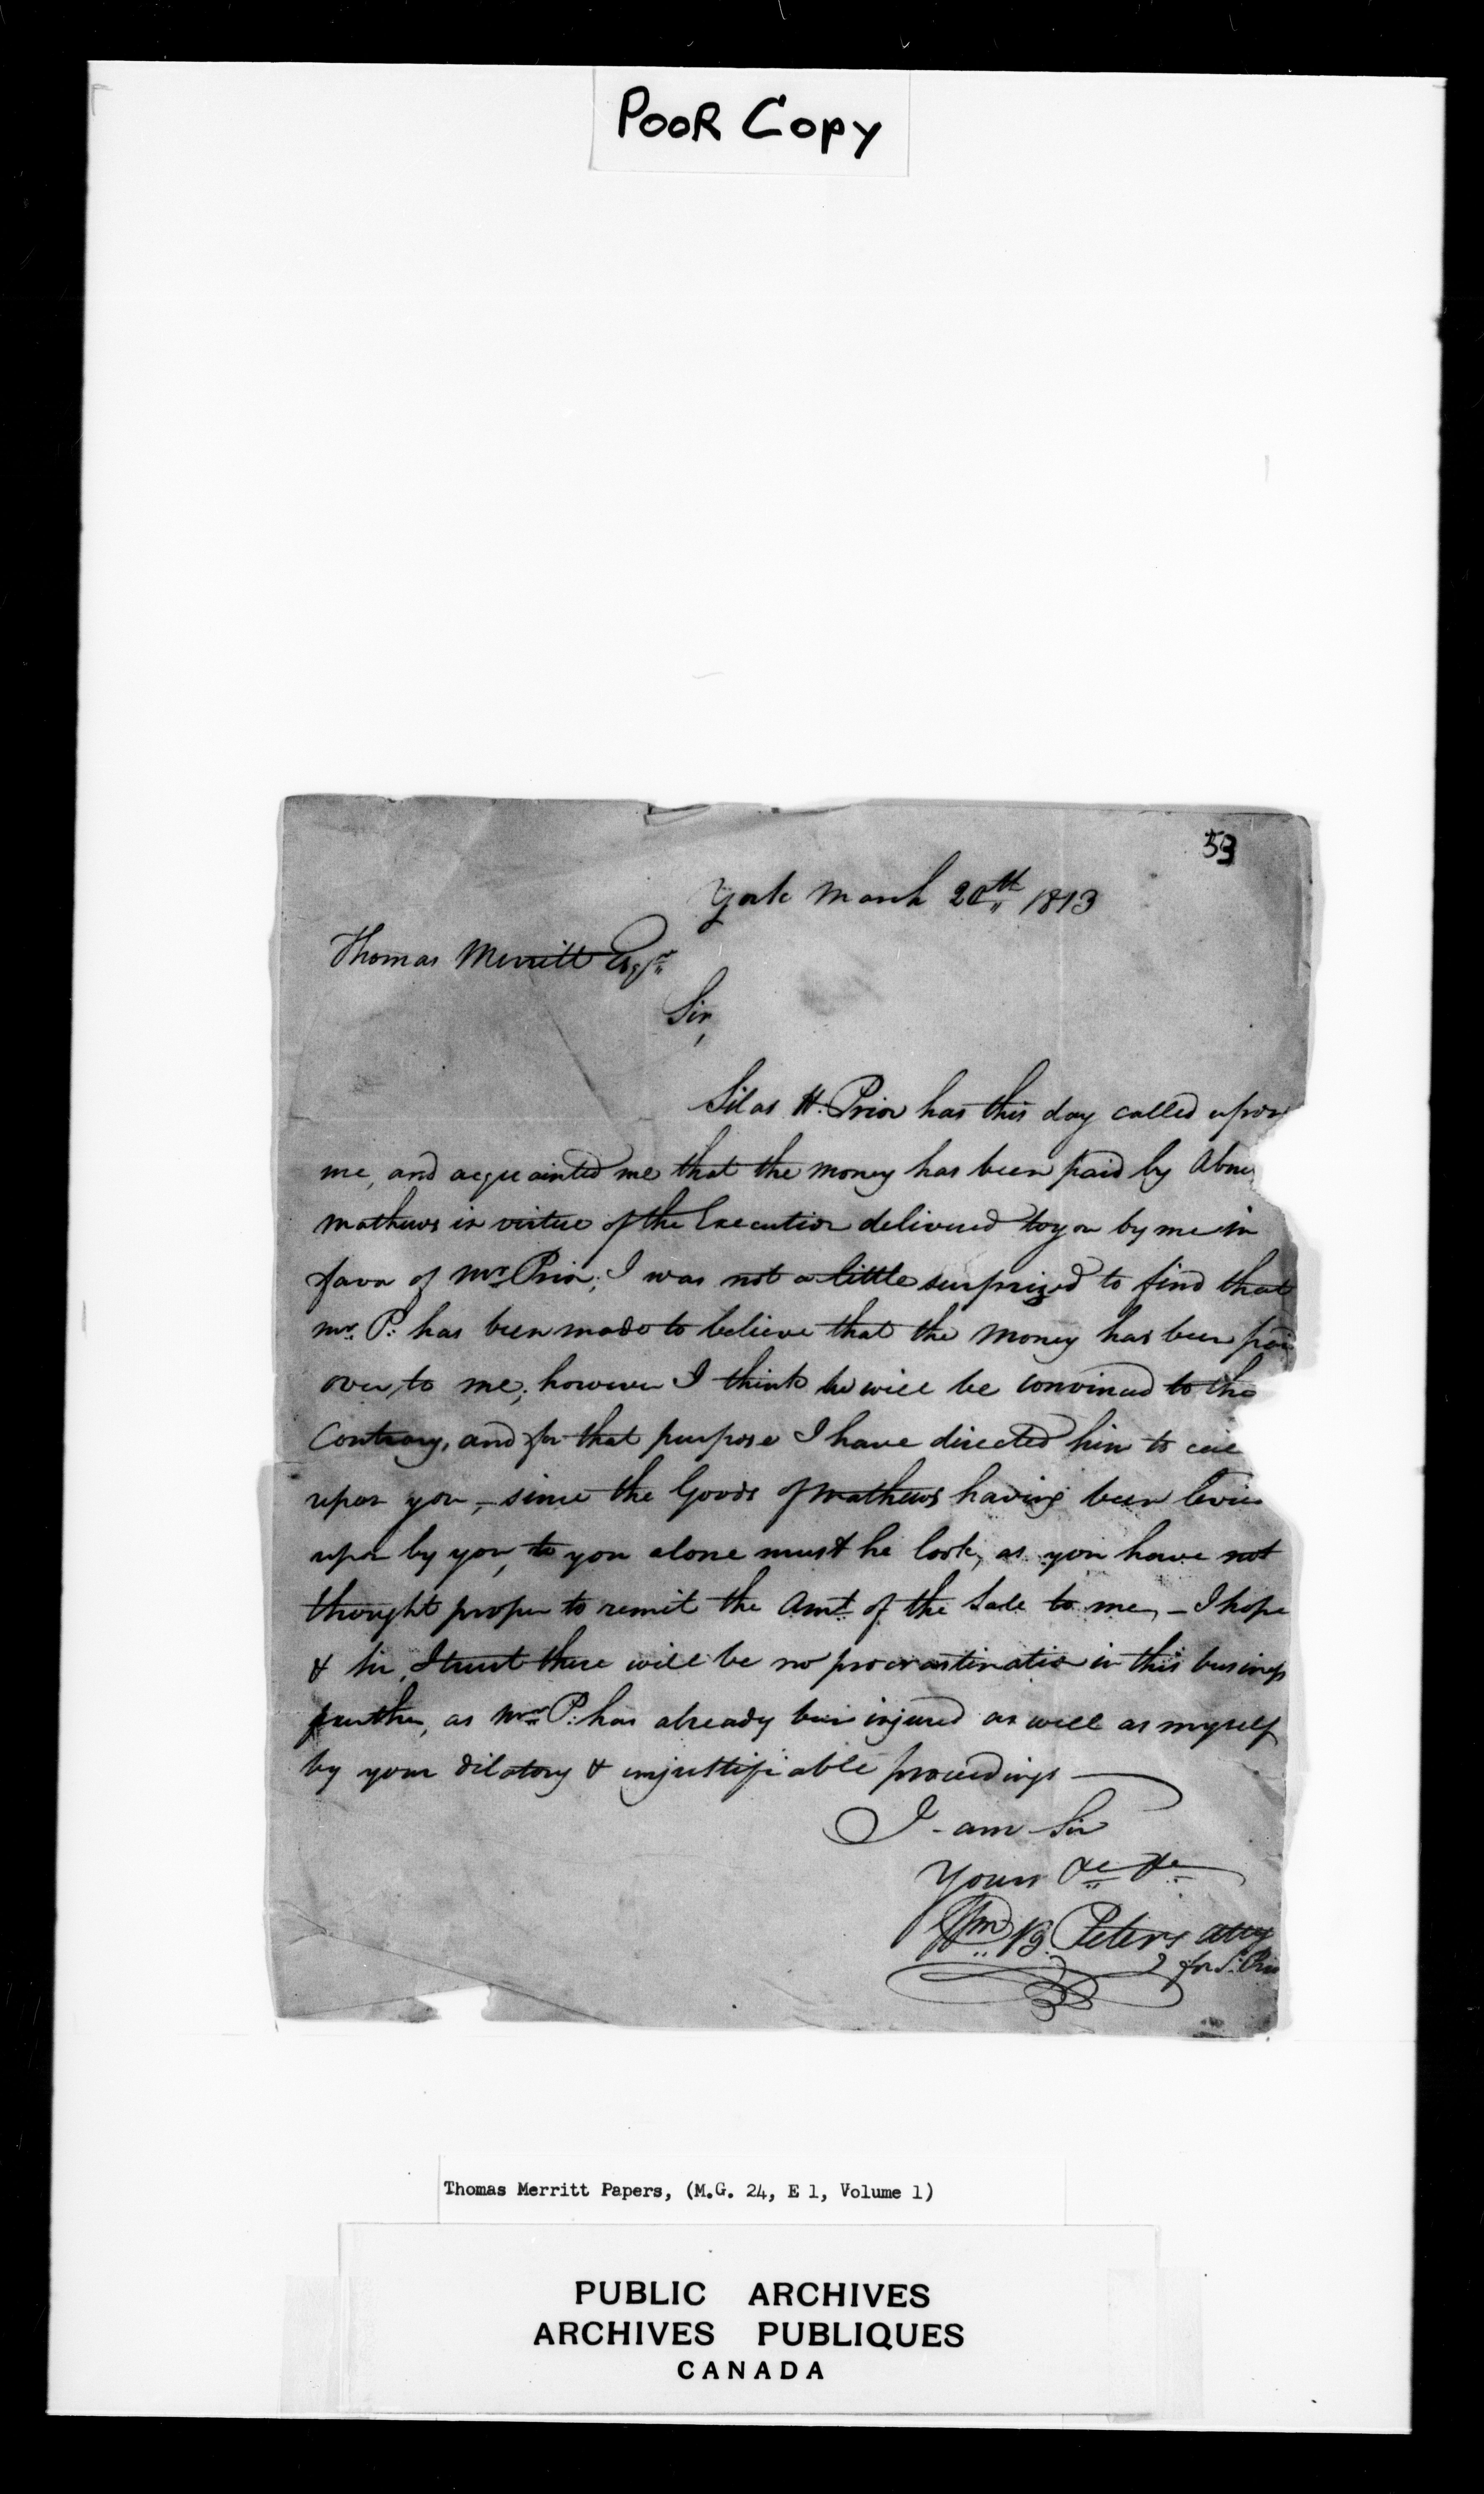 POOR COPY
53
York March 20th 1813
Thomas Merritt Esqr
Sir,
Silas H. Prior has this day called upon
me, and acquainted me that the money has been paid by Abne
Mathews in virtue of the Execution delivered to you by me in
favor of Mr. Prior; I was not a little surprized to find that
Mr. P: has been made to believe that the Money has been pai
over to me; however I think he will be convinced to the
Contrary, and for that purpose I have directed him to call
upon you, – since the Goods of Mathews having been levie
upon by you, to you alone must he look, as you have not
thought proper to remit the Amt of the Sale to me, – I hope
& Sir, I trust there will be no procrastination in this business
further, as Mr. P: has already been injured as well as myself
by your dilatory & unjustifiable proceedings —
I am Sir
Yours &c &c
Wm B. Peters atty
for S. Prio
Thomas Merritt Papers, (M.G. 24, E 1, Volume 1)
PUBLIC ARCHIVES
ARCHIVES PUBLIQUES
CANADA